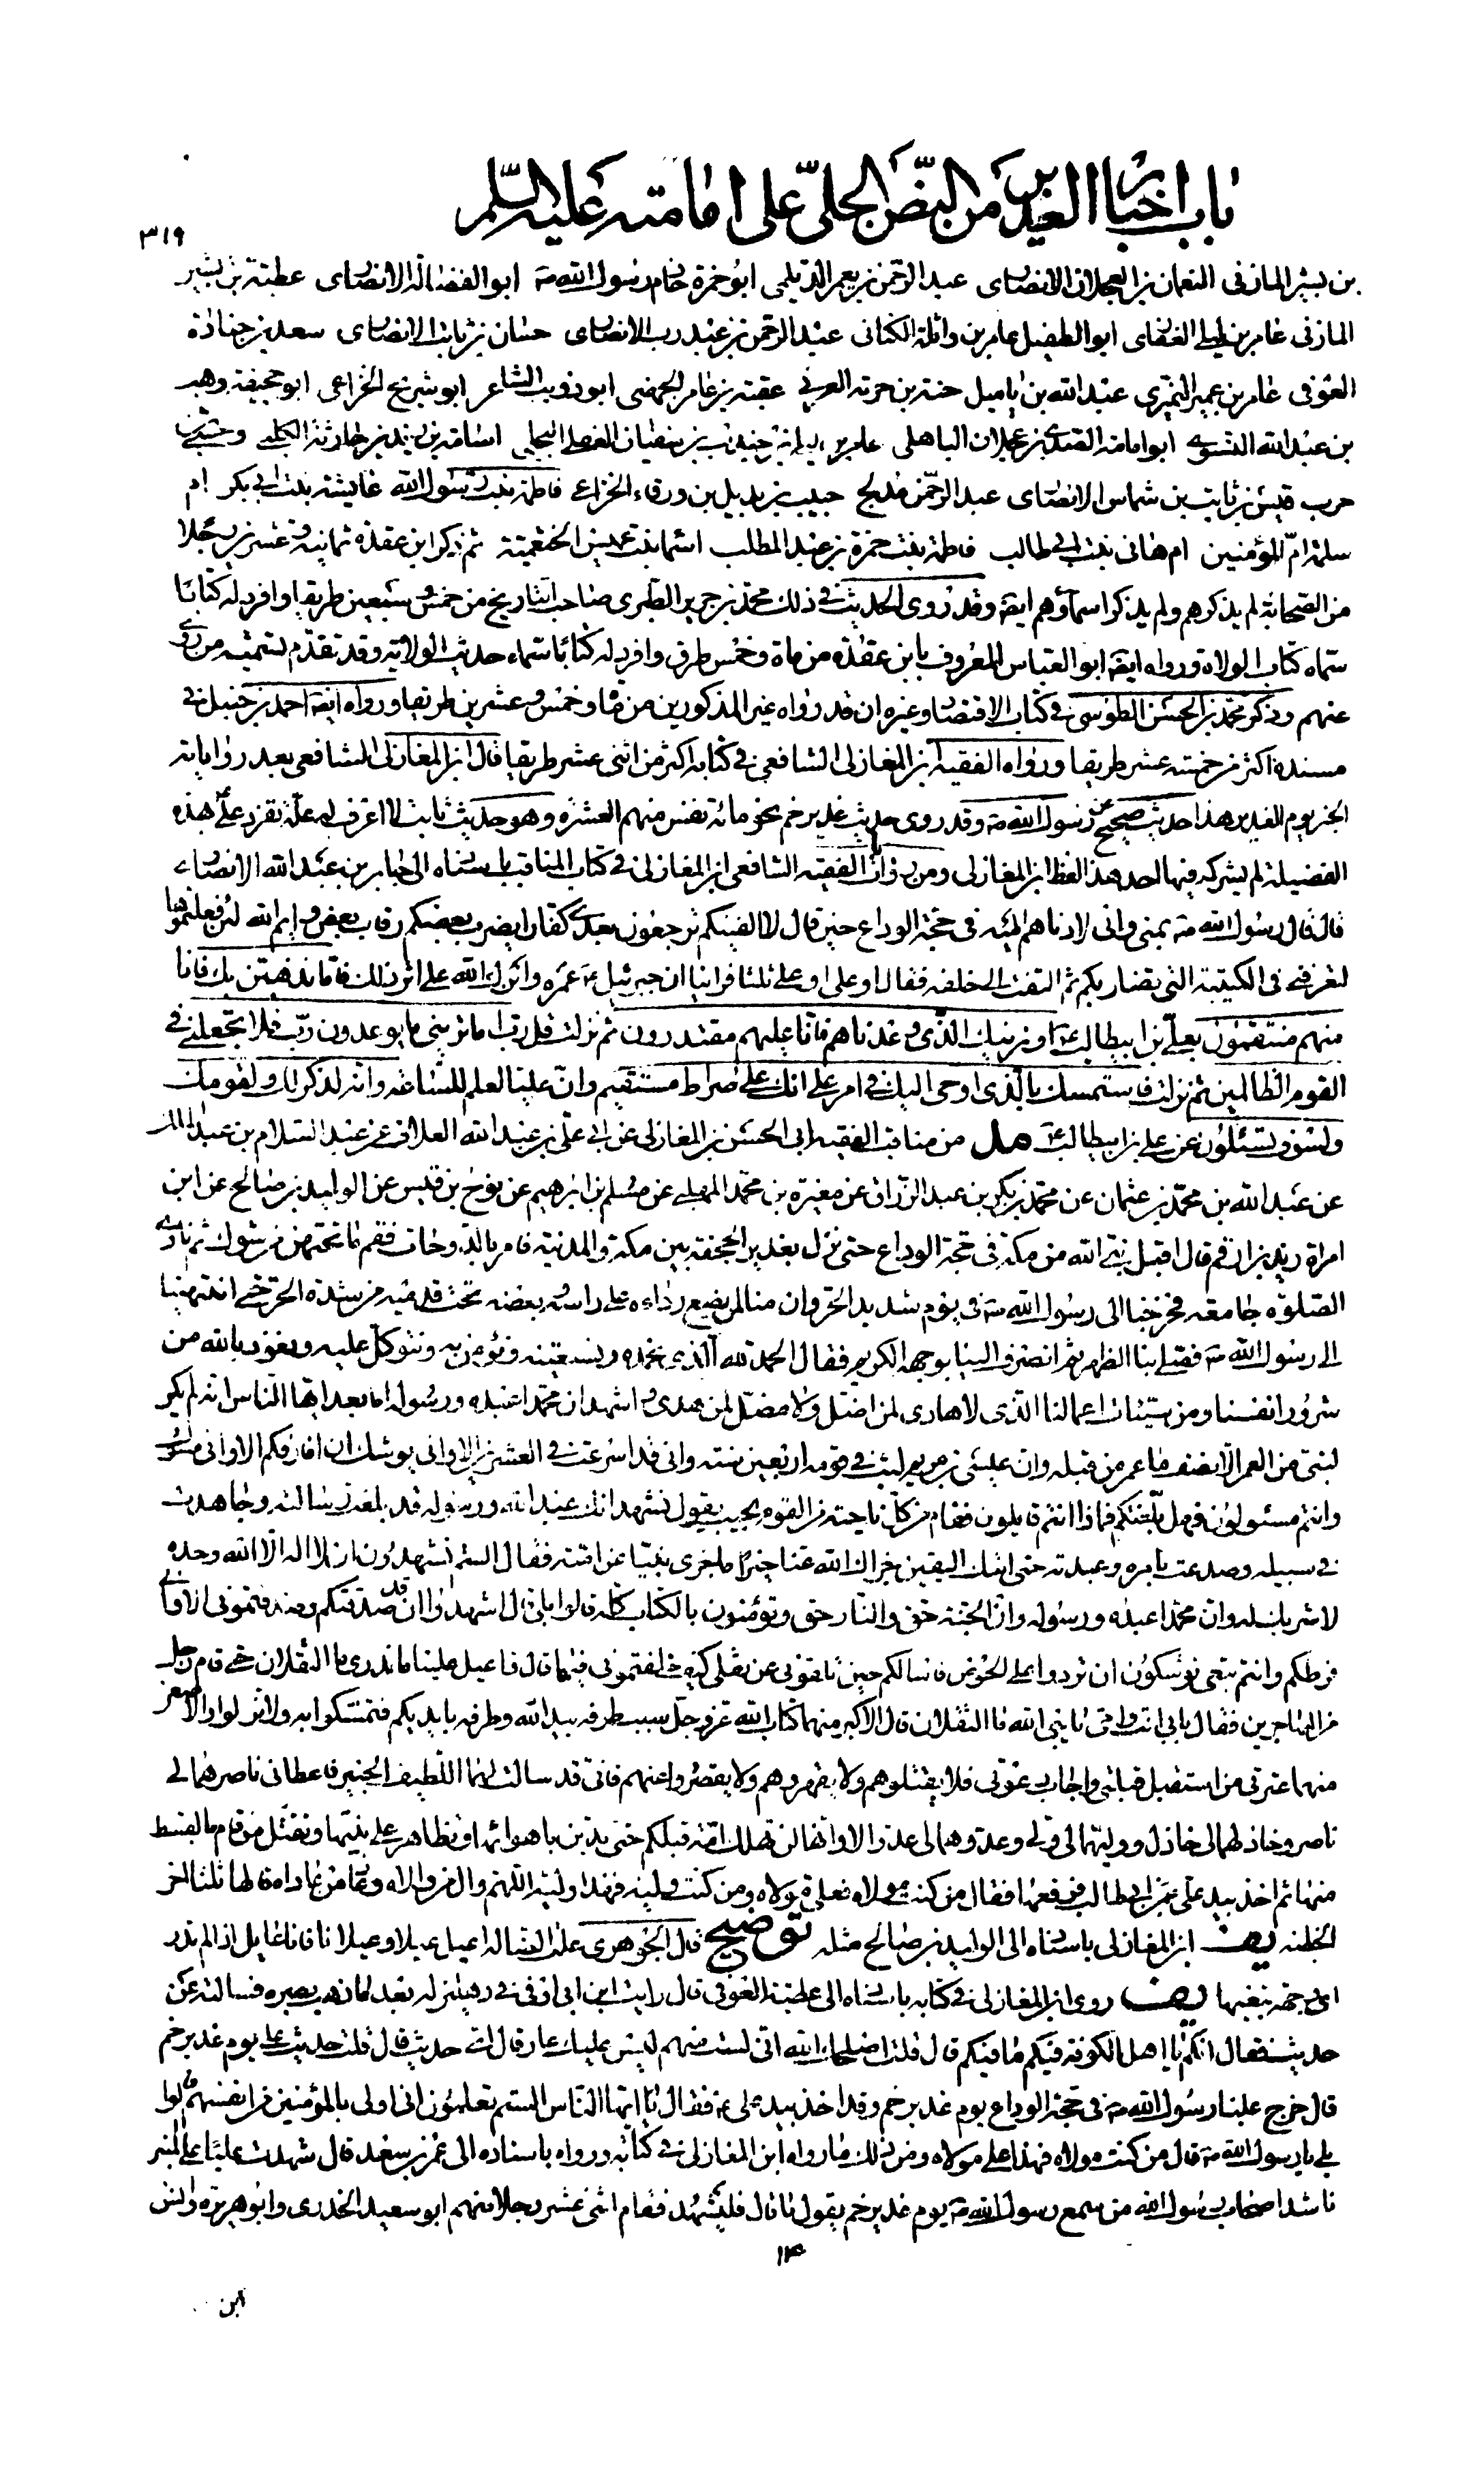 باب اخبار الغدير من النص الجلي على امامته عليه السلم
٣١٩
بن بشير المازنى النعمان بن العجلان الانصارى عبد الرحمن بن يعمر الديلمى ابو حمزة خادم رسول الله ص ابو الفضالة الانصارى عطية بن بشير
المازنى عامر بن ليلى الغفارى ابو الطفيل عامر بن واثلة الكنانى عبد الرحمن بن عبد رب الانصارى حسان بن ثابت الانصارى سعد بن جنادة
العوفى عامر بن عمير النميرى عبد الله بن ياميل حنة بن حرمة العرنى عقبة بن عامر الجهنى ابو ذويب الشاعر ابو شريح الخزاعى ابو جحيفة وهب
بن عبد الله النسوى ابو امامة الصدى بن عجلان الباهلى عامر بن ليلى بن جندب بن سفيان الغفلى البجلى اسامة بن زيد بن حارثة الكلبى وحشى بن
حرب قيس بن ثابت بن شماس الانصارى عبد الرحمن مدلج حبيب بن بديل بن ورقاء الخزاعى فاطمة بنت رسول الله عايشة بنت ابى بكر ام
سلمة ام المؤمنين ام هانى بنت ابى طالب فاطمة بنت حمزة بن عبد المطلب اسما بنت عميس الخثعمية ثم ذكر ابن عقدة ثمانية وعشرين رجلا
من الصحابة لم يذكرهم ولم يذكر اسماؤهم ايضا وقد روى الحديث فى ذلك محمد بن جرير الطبرى صاحب التاريخ من خمس وسبعين طريقا وافرد له كتابا
سماه كتاب الولاة ورواه ايضا ابو العباس المعروف بابن عقدة من ماة وخمس طرق وافرد له كتابا سماه حديث الولاية وقد تقدم تسمية من روى
عنهم وذكر محمد بن الحسن الطوسى فى كتاب الاقتصاد وغيره ان قد رواه غير المذكورين من ماة وخمس وعشرين طريقا ورواه ايضا احمد بن حنبل فى
مسنده اكثر من خمسة عشر طريقا ورواه الفقيه ابن المغازلى الشافعى فى كتابه اكثر من اثنى عشر طريقا قال ابن المغازلى الشافعى بعد رواياته
الخبر يوم الغدير هذا حديث صحيح عن رسول الله ص وقد روى حديث غدير خم نحو مائة نفس منهم العشرة وهو حديث ثابت لا اعرف له علة تفرد على ع بهذه
الفضيلة لم يشركه فيها احد هذا لفظ ابن المغازلى ومن روايات الفقيه الشافعى ابن المغازلى فى كتاب المناقب باسناده الى جابر بن عبد الله الانصارى
قال قال رسول الله ص بمنى وانى لادناهم اليه فى حجة الوداع حين قال لا الفينكم ترجعون بعدى كفارا يضرب بعضكم رقاب بعض وايم الله لئن فعلتموها
لتعرفنى فى الكتيبة التى تضاربكم ثم التفت الى خلفه فقال او على او على ثلثا فراينا ان جبرئيل ع غمزه وانزل الله على اثر ذلك فاما نذهبن بك فانا
منهم منتقمون بعلى بن ابيطالب ع او نرينك الذى وعدناهم فانا عليهم مقتدرون ثم نزلت قل رب اما ترينى ما يوعدون رب فلا تجعلنى فى
القوم الظالمين ثم نزلت فاستمسك بالذى اوحى اليك فى امر على انك على صراط مستقيم وان عليا لعلم للساعة وانه لذكر لك ولقومك
ولسوف تسئلون عن على بن ابيطالب ع مد من مناقب الفقيه ابى الحسن بن المغازلى عن ابى على بن عبد الله العلاف عن عبد السلام بن عبد الملك
عن عبد الله بن محمد بن عثمان عن محمد بن بكر بن عبد الرزاق عن مغيرة بن محمد المهلبى عن مسلم بن ابرهيم عن نوح بن قيس عن الوليد بن صالح عن ابن
امراة زيد بن ارقم قال اقبل نبى الله من مكة فى حجة الوداع حتى نزل بغدير الجحفة بين مكة والمدينة فامر بالدوحات فقم ما تحتهن من شوك ثم نادى
الصلوة جامعة فخرجنا الى رسول الله ص فى يوم شديد الحر وان منا لمن يضع رداءه على راسه وبعضه تحت قدميه من شدة الحر حتى انتهينا
الى رسول الله ص فصلى بنا الظهر ثم انصرف الينا بوجهه الكريم فقال الحمد لله الذى نحمده ونستعينه ونؤمن به ونتوكل عليه ونعوذ بالله من
شرور انفسنا ومن سيئات اعمالنا الذى لا هادى لمن اضل ولا مضل لمن هدى واشهد ان محمدا عبده ورسوله اما بعد ايها الناس انه لم يكن
لنبى من العمر الا نصف ما عمر من قبله وان عيسى بن مريم لبث فى قومه اربعين سنة وانى قد اسرعت فى العشرين الا وانى يوشك ان افارقكم الا وانى مسئول
وانتم مسئولون فهل بلغتكم فماذا انتم قايلون فقام من كل ناحية من القوم مجيب يقول نشهد انك عبد الله ورسوله قد بلغت رسالته وجاهدت
فى سبيله وصدعت بامره وعبدته حتى اتيك اليقين جزاك الله عنا خيرا ما جزى نبيا عن امته فقال الستم تشهدون ان لا اله الا الله وحده
لا شريك له وان محمدا عبده ورسوله وان الجنة حق والنار حق وتؤمنون بالكتاب كله قالوا بلى قال اشهد ان قد صدقتكم وصدقتمونى الا وانى
فرطكم وانتم تبعى توشكون ان تردوا على الحوض فاسالكم حين تلقونى عن ثقلى كيف خلفتمونى فيهما قال فاعيل علينا ما ندرى ما الثقلان حتى قام رجل
من المهاجرين فقال بابى انت وامى يا نبى الله ما الثقلان قال الاكبر منهما كتاب الله عز وجل سبب طرفه بيد الله وطرف بايديكم فتمسكوا به ولا تولوا والاصغر
منهما عترتى من استقبل قبلتى واجاب دعوتى فلا يقتلوهم ولا يقهروهم ولا يقصروا عنهم فانى قد سالت لهما اللطيف الخبير فاعطانى ناصرهما لى
ناصر وخاذلهما لى خاذل ووليهما لى ولى وعدوهما لى عدو الا وانها لن تهلك امة قبلكم حتى يدين باهوائها وتظاهر على نبيها وتقتل من قام بالقسط
منها ثم اخذ بيد على بن ابى طالب فرفعها فقال من كنت مولاه فعلى مولاه ومن كنت وليه فهذا وليه اللهم وال من والاه وعاد من عاداه قالها ثلثا اخر
الخطبة يف ابن المغازلى باسناده الى الوليد بن صالح مثله توضيح قال الجوهرى علت الضالة اعيل عيلا وعيلانا فانا عايل اذا لم تدر
اى وجهة تبغيها يف روى ابن المغازلى فى كتابه باسناده الى عطية العوفى قال رايت ابن ابى اوفى فى دهليز له بعد ما ذهب بصره فسالته عن
حديث فقال انكم يا اهل الكوفة فيكم ما فيكم قال قلت اصلحك الله انى لست منهم ليس عليك عار قال اى حديث قال قلت حديث على يوم غدير خم
قال خرج علينا رسول الله ص فى حجة الوداع يوم غدير خم وقد اخذ بيد على ع فقال يا ايها الناس الستم تعلمون انى اولى بالمؤمنين من انفسهم قالوا
بلى يا رسول الله ص قال من كنت مولاه فهذا على مولاه ومن ذلك ما رواه ابن المغازلى فى كتابه ورواه باسناده الى عمر بن سعد قال شهدت عليا على المنبر
ناشدا اصحاب رسول الله من سمع رسول الله ص يوم غدير خم يقول ما قال فليشهد فقام اثنى عشر رجلا منهم ابو سعيد الخدرى وابو هريرة وانس
١٣
ابن